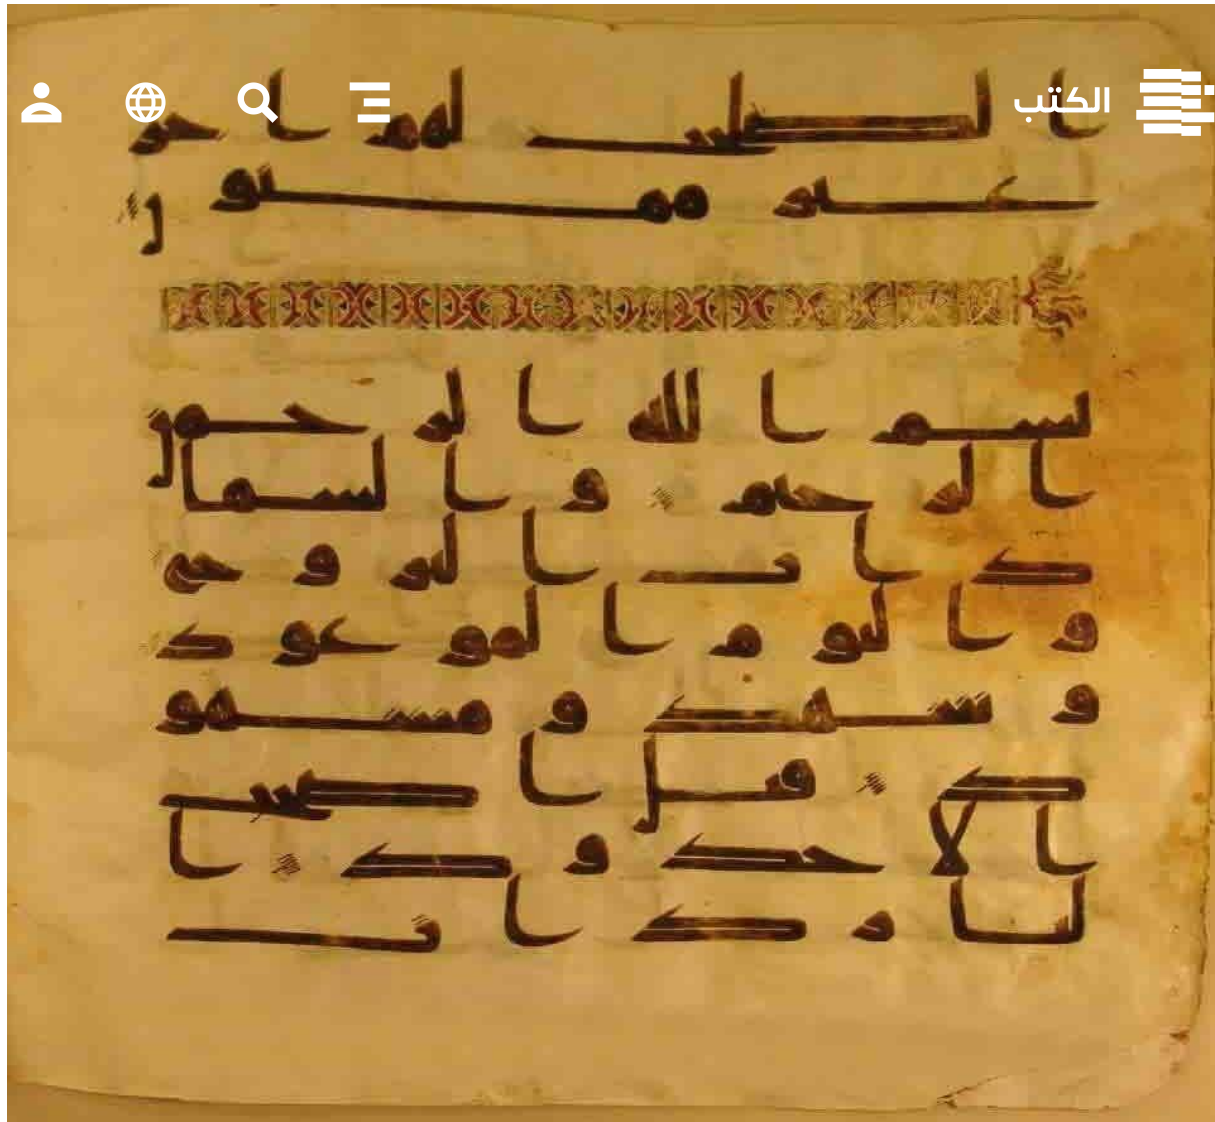 الكتب
الصلحت لهم اجر
غير ممنون
بسم الله الرحمن
الرحيم والسما
ذات البروج
واليوم الموعود
وشهد ومشهو
د قتل اصحب
الاخدود ا
لنار ذات